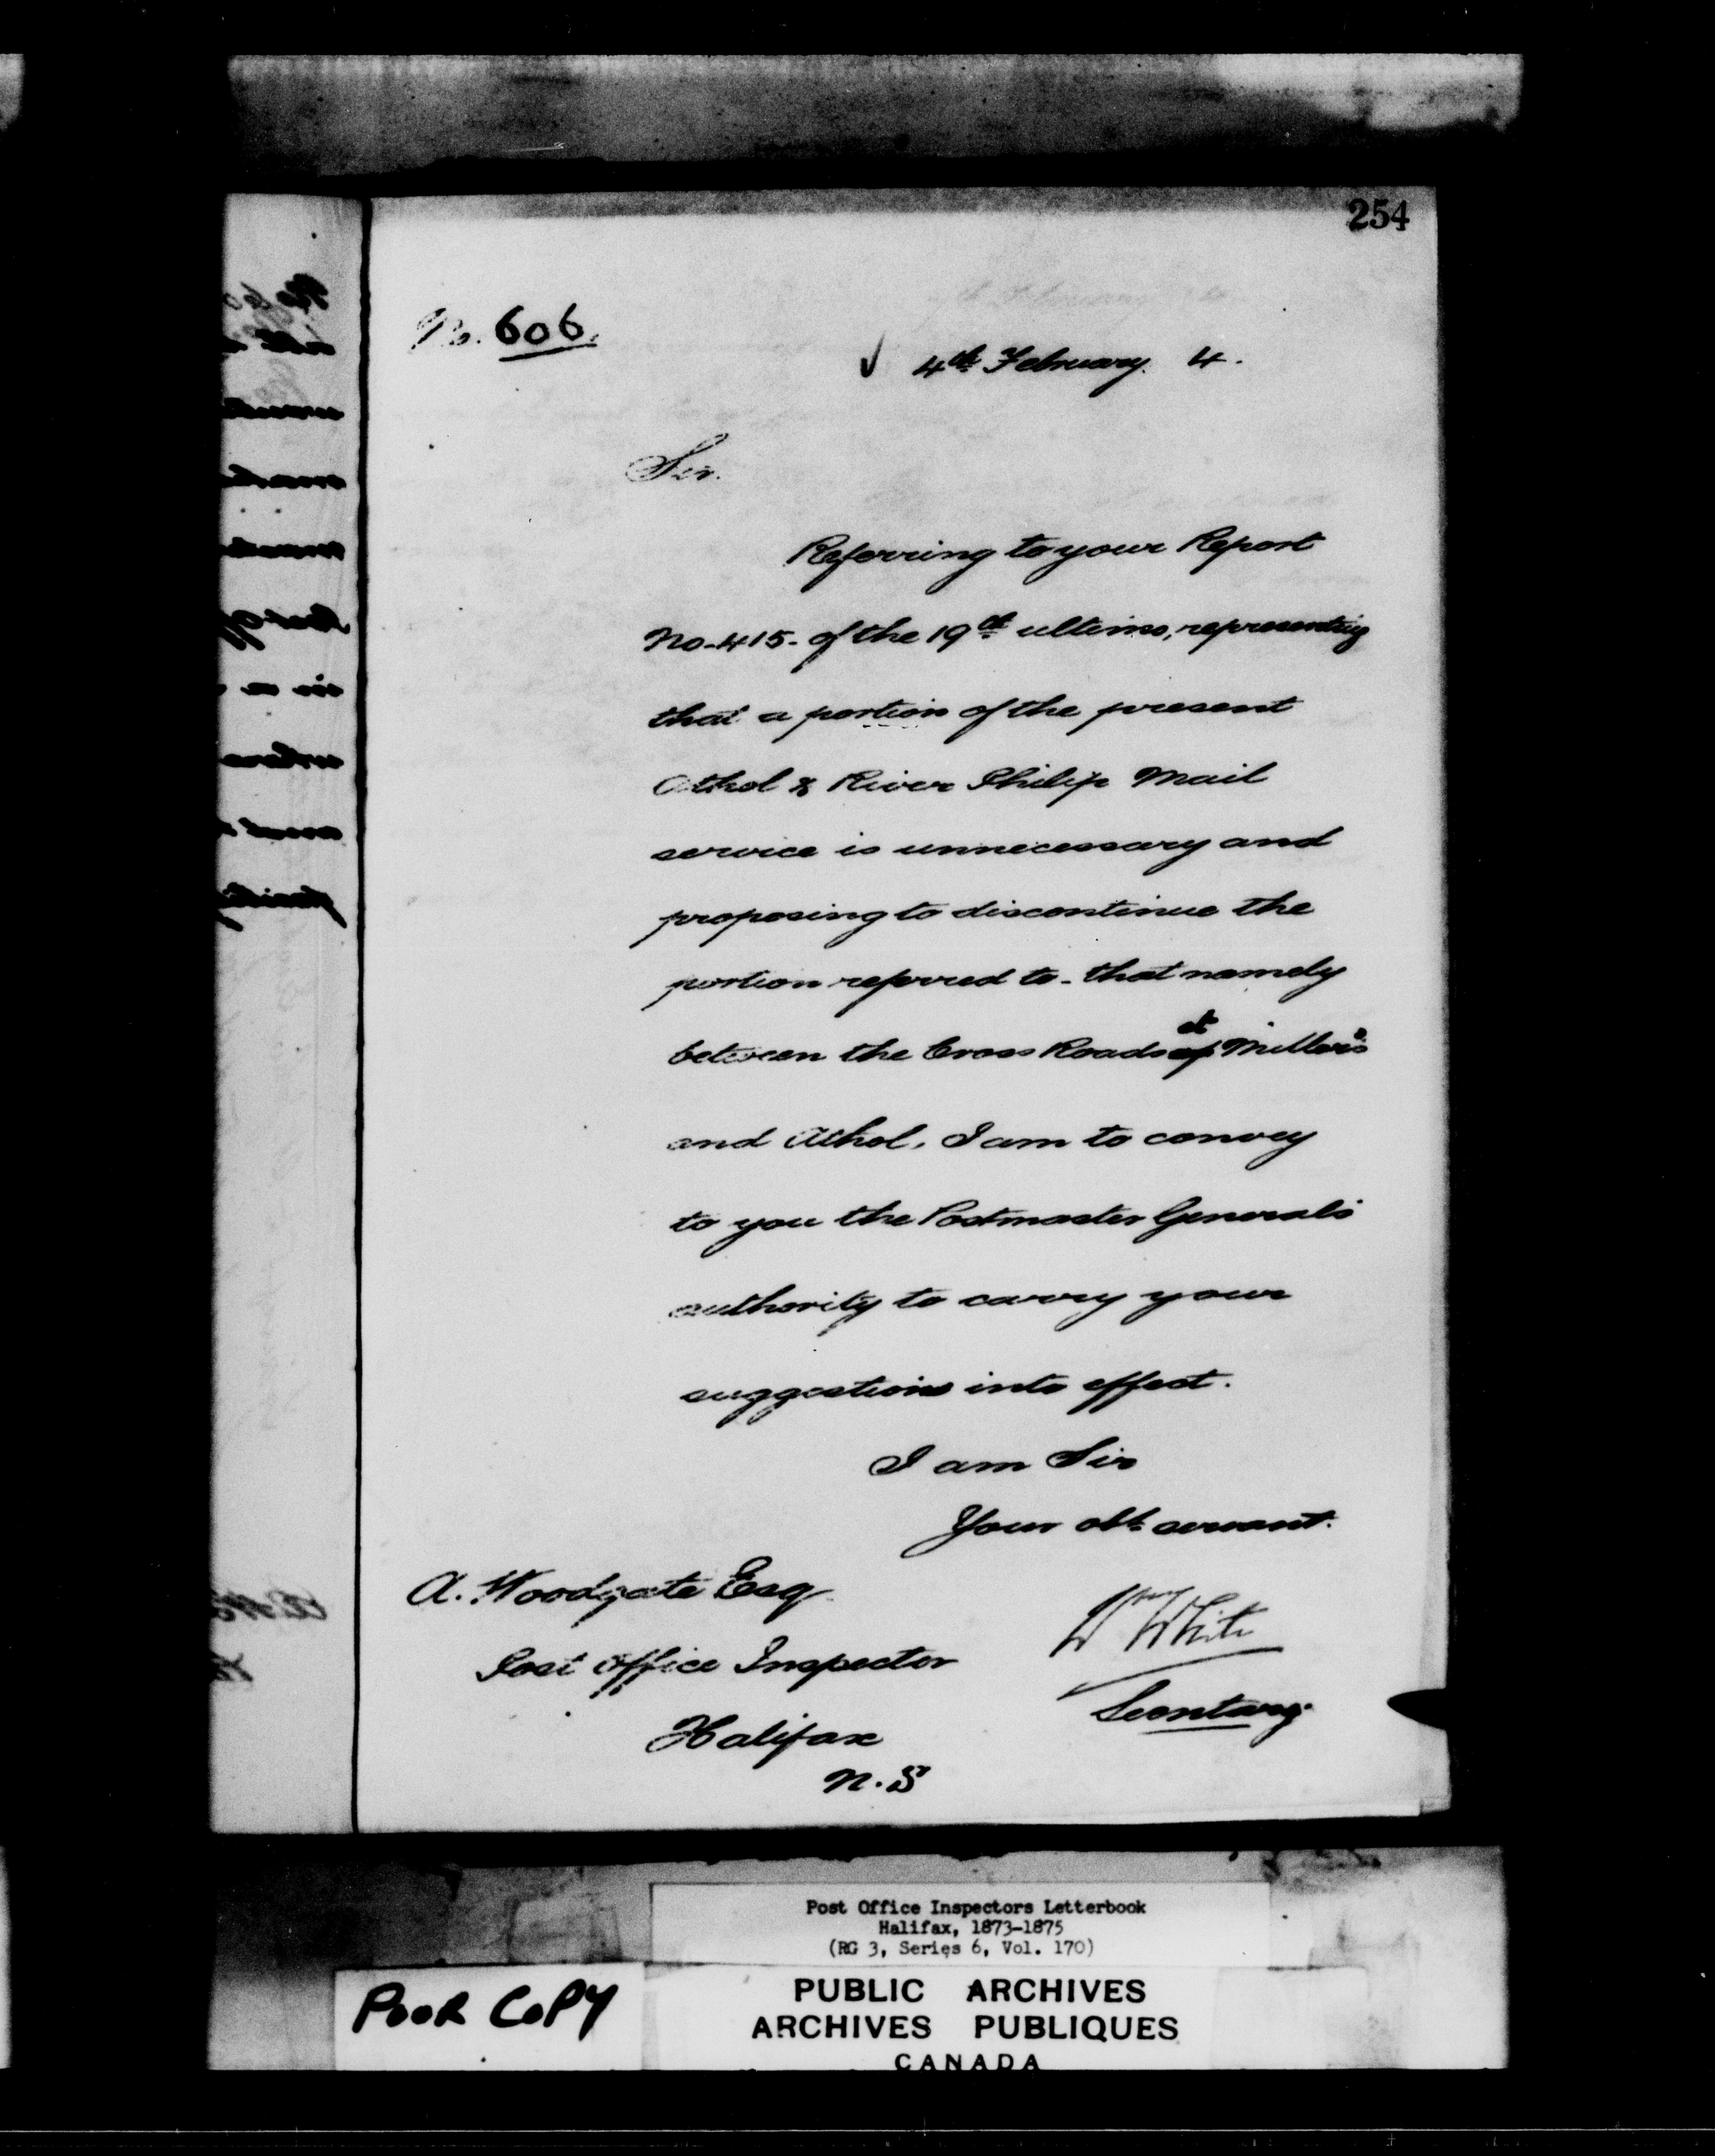 254
No. 606.
4th February. 4.
Sir.
Referring to your Report
No. 415. of the 19th ultimo, representing
that a portion of the present
Athol & River Philip Mail
service is unnecessary and
proposing to discontinue the
portion referred to - that namely
between the Cross Roads at Miller's
and Athol. I am to convey
to you the Postmaster General's
authority to carry your
suggestions into effect.
I am Sir
Your obt. servant.
A. Woodgate Esq.
Wm White
Post Office Inspector
Secretary.
Halifax
N.S
Post Office Inspectors Letterbook
Halifax, 1873-1875
(RG 3, Series 6, Vol. 170)
POOR COPY
PUBLIC ARCHIVES
ARCHIVES PUBLIQUES
CANADA